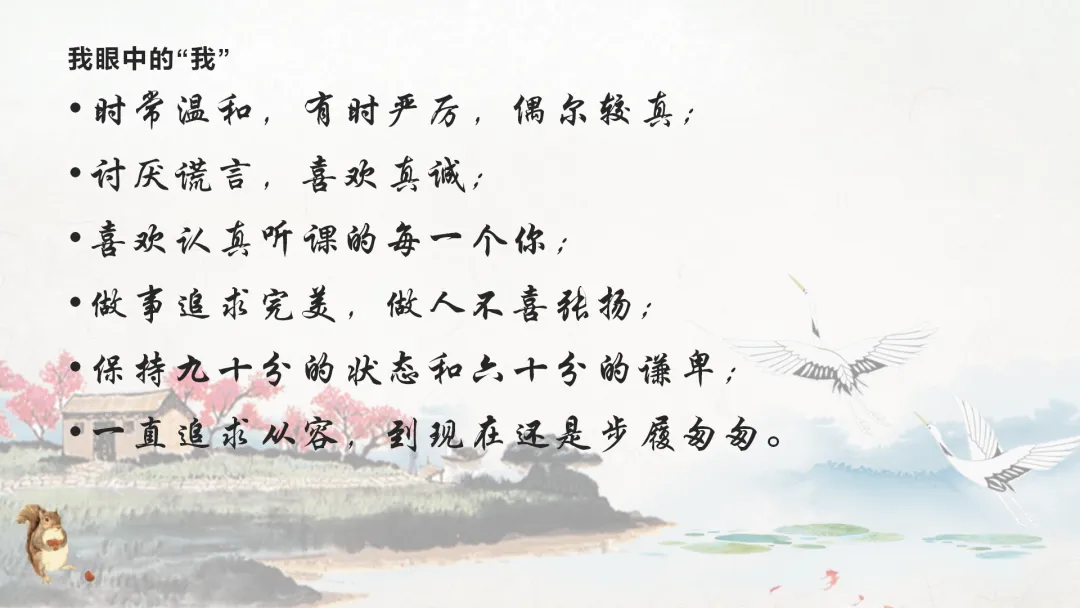 我眼中的“我”
•时常温和，有时严厉，偶尔较真；
•讨厌谎言，喜欢真诚；
•喜欢认真听课的每一个你；
•做事追求完美，做人不喜张扬；
•保持九十分的状态和六十分的谦卑；
•一直追求从容，到现在还是步履匆匆。